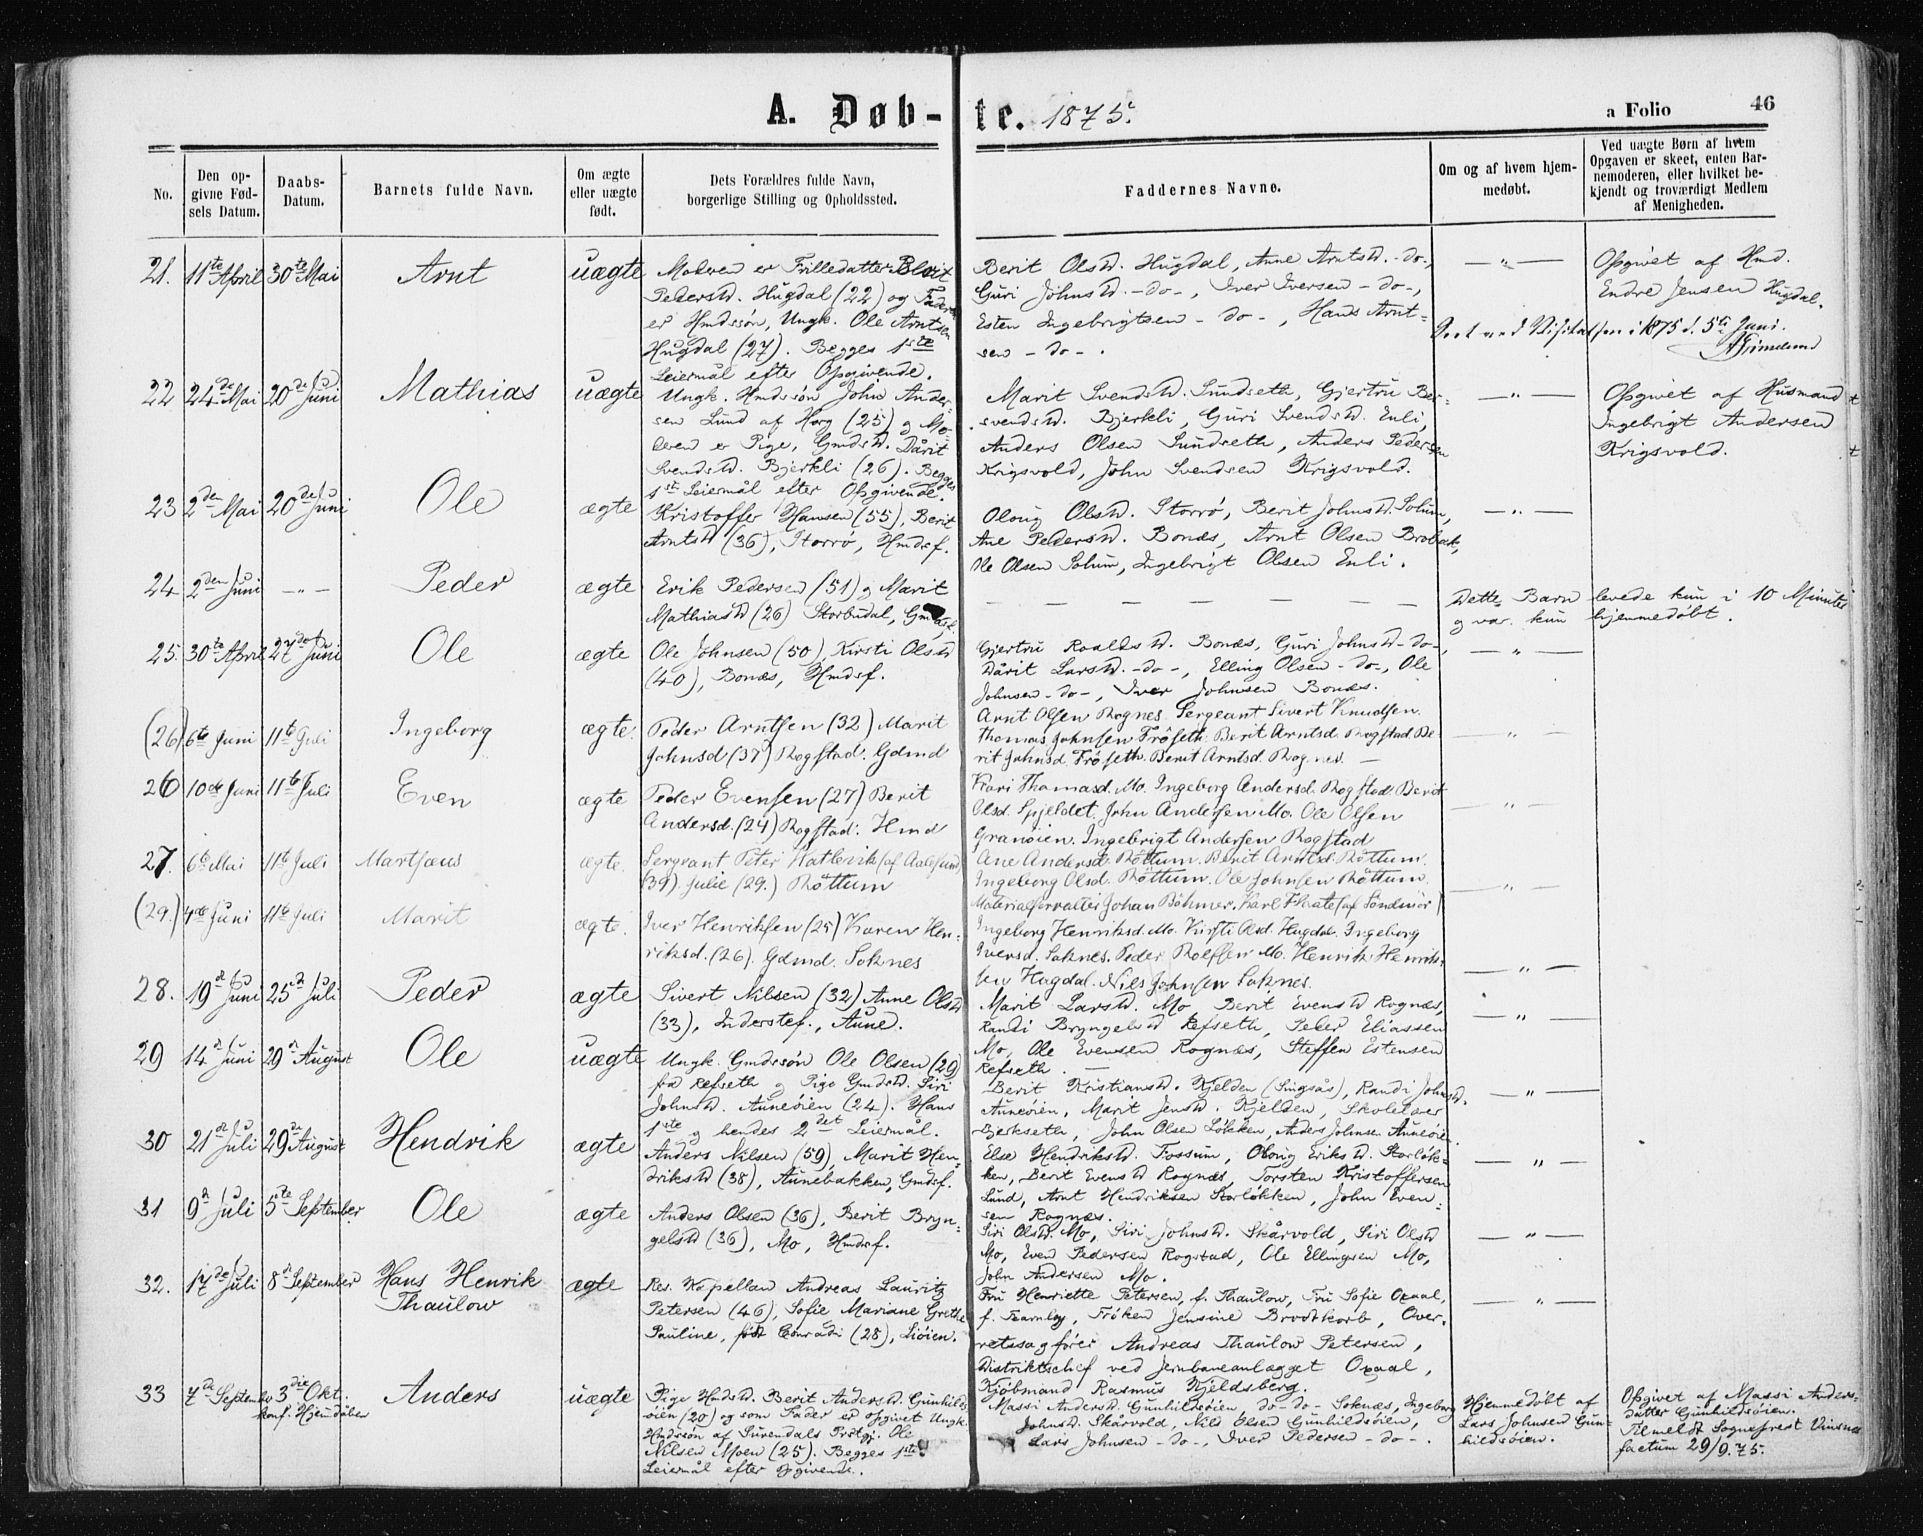 A. Døb-te. 1875.
a Folio 46
No.
Den op-
givne Fød-
sels Datum.
Daabs-
Datum.
Barnets fulde Navn.
Om ægte
eller uægte
født.
Dets Forældres fulde Navn,
borgerlige Stilling og Opholdssted.
Faddernes Navne.
Om og af hvem hjem-
medøbt.
Ved uægte Børn af hvem
Opgaven er skeet, enten Bar-
nemoderen, eller hvilket be-
kjendt og troværdigt Medlem
af Menigheden.
21. 11te April 30te Mai Arnt uægte
Moderen er Inderstedatter Berit
Pedersd. Hugdal (22) og Fader
er Hmdssøn, Ungk. Ole Arntsen
Hugdal (27). Begges 1ste
Leiermål efter Opgivende.
Berit Olsd. Hugdal, Ane Arntsd. -do-,
Guri Johnsd. -do-, Iver Iversen -do-,
Esten Ingebrigtsen -do-, Hans Arnt-
sen -do-.
— " —
Opgivet af Hmd.
Endre Jensen Hugdal.
Seet ved Visitatsen i 1875 d. 5te Juni.
AGrimelund
22 24de Mai 20de Juni Mathias uægte
Ungk. Hmdssøn John Ander-
sen Lund af Horg (25) og Mo-
deren er Pige, Gmdsd. Dårit
Svendsd. Bjerkli (26). Begges
1st Leiermål efter Opgivende.
Marit Svendsd. Sundseth, Gjertru Ber-
svendsd. Bjerkli, Guri Svendsd. Enli,
Anders Olsen Sundseth, Anders Pedersen
Krigsvold, John Svendsen Krigsvold.
— " —
Opgivet af Husmand
Ingebrigt Andersen
Krigsvold.
23 2den Mai 20de Juni Ole ægte
Kristoffer Hansen (55), Berit
Arntsd (36), Storrø, Hmdsf.
Oloug Olsd. Storrø, Berit Johnsd. Solum,
Ane Pedersd. Bonæs, Arnt Olsen Brobæk,
Ole Olsen Solum, Ingebrigt Olsen Enli.
— " —
24 2den Juni — " — Peder ægte
Erik Pedersen (51) og Marit
Mathiasd (26) Storbudal,
— — — — — — —
Dette Barn levede kun i 10 Minuter
og var kun hjemmedøbt.
25. 30te April 27de Juni Ole ægte
Ole Johnsen (50), Kirsti Olsd
(40), Bonæs, Hmdsf.
Gjertru Roaldsd. Bonæs, Guri Johnsd -do-,
Dårit Larsd. -do-, Elling Olsen -do-, Ole
Johnsen -do-, Iver Johnsen Bonæs.
— " —
(26) 6te Juni 11te Juli Ingeborg ægte.
Peder Arntsen (32) Marit
Johnsd (37) Rogstad. Gdmd
Arnt Olsen Rognes. Sergeant Sivert Knudsen.
Thomas Johnsen Frøseth. Berit Arntsd. Rogstad Be-
rit Johnsd. Frøseth. Berit Arntsd. Rognes. —
— " —
26 10de Juni 11te Juli Even ægte
Peder Evensen (27) Berit
Andersd. (24) Rogstad. Hmd
Kari Thomasd. Mo. Ingeborg Andersd. Rogstad. Berit
Olsd. Spjeldet. John Andersen Mo. Ole Olsen
Granøien. Ingebrigt Andersen Rogstad
— " —
27. 6te Mai 11te Juli ægte.
Sergeant Peter Hatlevik (af Aalesund)
(39). Julie (29.) Røttum
Ane Andersd. Røttum. Berit Arntsd. Røttum.
Ingeborg Olsd. Røttum. Ole Johnsen Røttum.
Materialforvalter Johan Böhmer. Karl (af Søndmør)
— " —
(29.) 4de Juni 11te Juli Marit ægte.
Iver Henriksen (25) Karen Hen-
riksd. (26). Gdmd. Soknes
Ingeborg Henriksd. Mo. Kirsti Hugdal. Ingeborg
Iversd. Soknes. Peder Rolfsen Mo. Henrik Henrik-
sen Hugdal. Nils Johnsen Soknes.
— " —
28. 19d Juni 25d Juli Peder ægte
Sivert Nilsen (32) Anne Olsd
(33), Inderstef., Aune.
Marit Larsd. Mo Berit Evensd Rognæs,
Randi Bryngelsd Refseth, Peder Eliassen
Mo, Ole Evensen Rognæs, Steffen Estensen
Refseth. —
— " —
29 14d Juni 29d August Ole uægte
Ungk. Gmdssøn Ole Olsen (29)
fra Refseth og Pige Gmdsd. Siri
Johnsd. Aunøien (24). Hans
1ste og hendes 2det Leiermål.
Berit Kristiansd. Kjelden (Singsås), Randi Johnsd.
Aunøien, Marit Jensd. Kjelden, Skolelærer
Bjerkseth, John Olsen Løkken, Anders Johnsen Aunøien.
— " —
30 21d Juli 29d August Hendrik ægte
Anders Nilsen (59) Marit Hen-
driksd (38), Aunebakken, Gmdsf.
Else Hendriksd. Fossum, Oloug Eriksd. Storløk-
ken, Berit Evensd Rognæs, Torsten Kristoffersen
Lund, Arnt Hendriksen Storløkken, John Even-
sen Rognæs.
— " —
31 9d Juli 5te September Ole ægte
Anders Olsen (36), Berit Bryn-
gelsd (36), Mo, Hmdsf.
Siri Olsd. Mo, Siri Johnsd. Skårvold, Siri Olsd
Mo, Even Pedersen Rogstad, Ole Ellingsen Mo,
John Andersen Mo.
— " —
32. 17de Juli 8d September Hans Henrik
Thaulow
ægte
Res. Kapellan Andreas Lauritz
Petersen (46), Sofie Mariane Grethe
Pauline, født Conradi (28), Liøien.
Fru Henriette Petersen, f. Thaulow, Fru Sofie Oxaal,
f. Fearnley, Frøken Jensine Brodtkorb, Over-
retssagfører Andreas Thaulow Petersen,
Distriktschef ved Jernbaneanlægget Oxaal,
Kjøbmand Rasmus Kjeldsberg.
— " —
33 7de September 3die Okt.
konf. Hjemdåben
Anders uægte
Pige Hmdsd. Berit Andersd. Gunhilds-
øien (20) og som Fader er opgivet Ungk.
Hmdssøn af Surendals Prstgj. Ole
Nilsen Moen (25). Begges 1ste
Leiermål efter opgivende.
Massi Andersd. Gunhildsøien, do- do- Soknæs, Ingeborg
Johnsd. Skårvold, Nils Olsen Gunhildsøien,
Lars Johnsen -do-, Iver Pedersen -do-.
Hjemmedøbt af
Lars Johnsen Gun-
hildsøien.
Opgivet af Massi Anders-
datter Gunhildsøien.
Tilmeldt Sogneprest
factum 29/9.75.